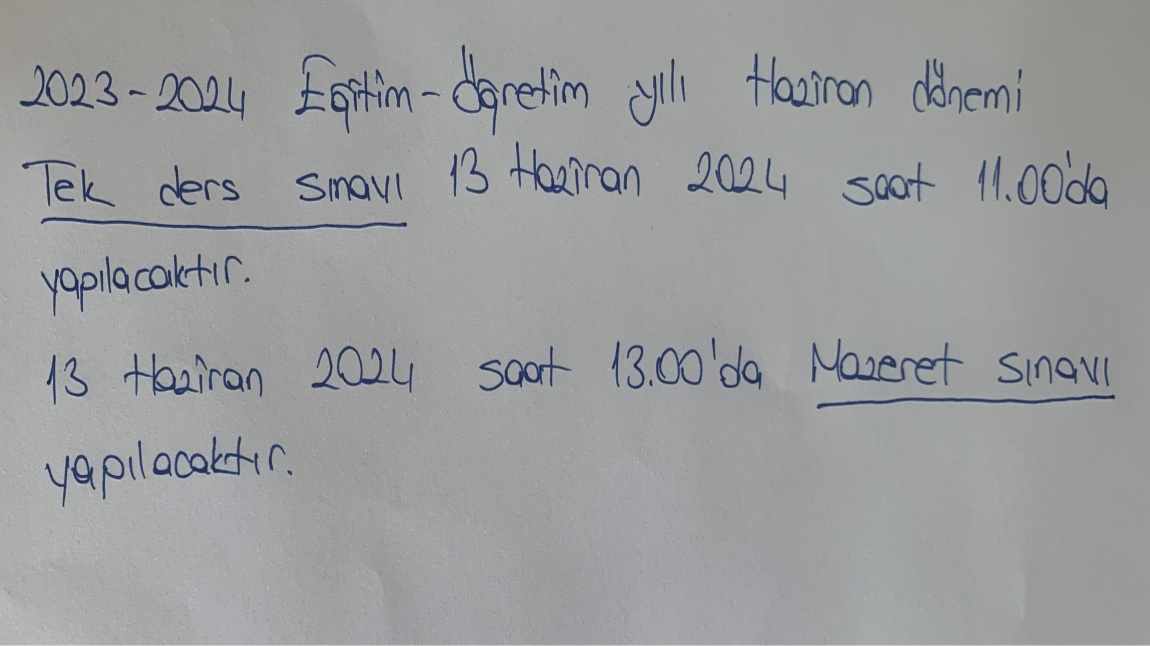 2023-2024 Eğitim-Öğretim yılı Haziran dönemi
Tek ders sınavı 13 Haziran 2024 saat 11.00'da
yapılacaktır.
13 Haziran 2024 saat 13.00'da Mazeret sınavı
yapılacaktır.